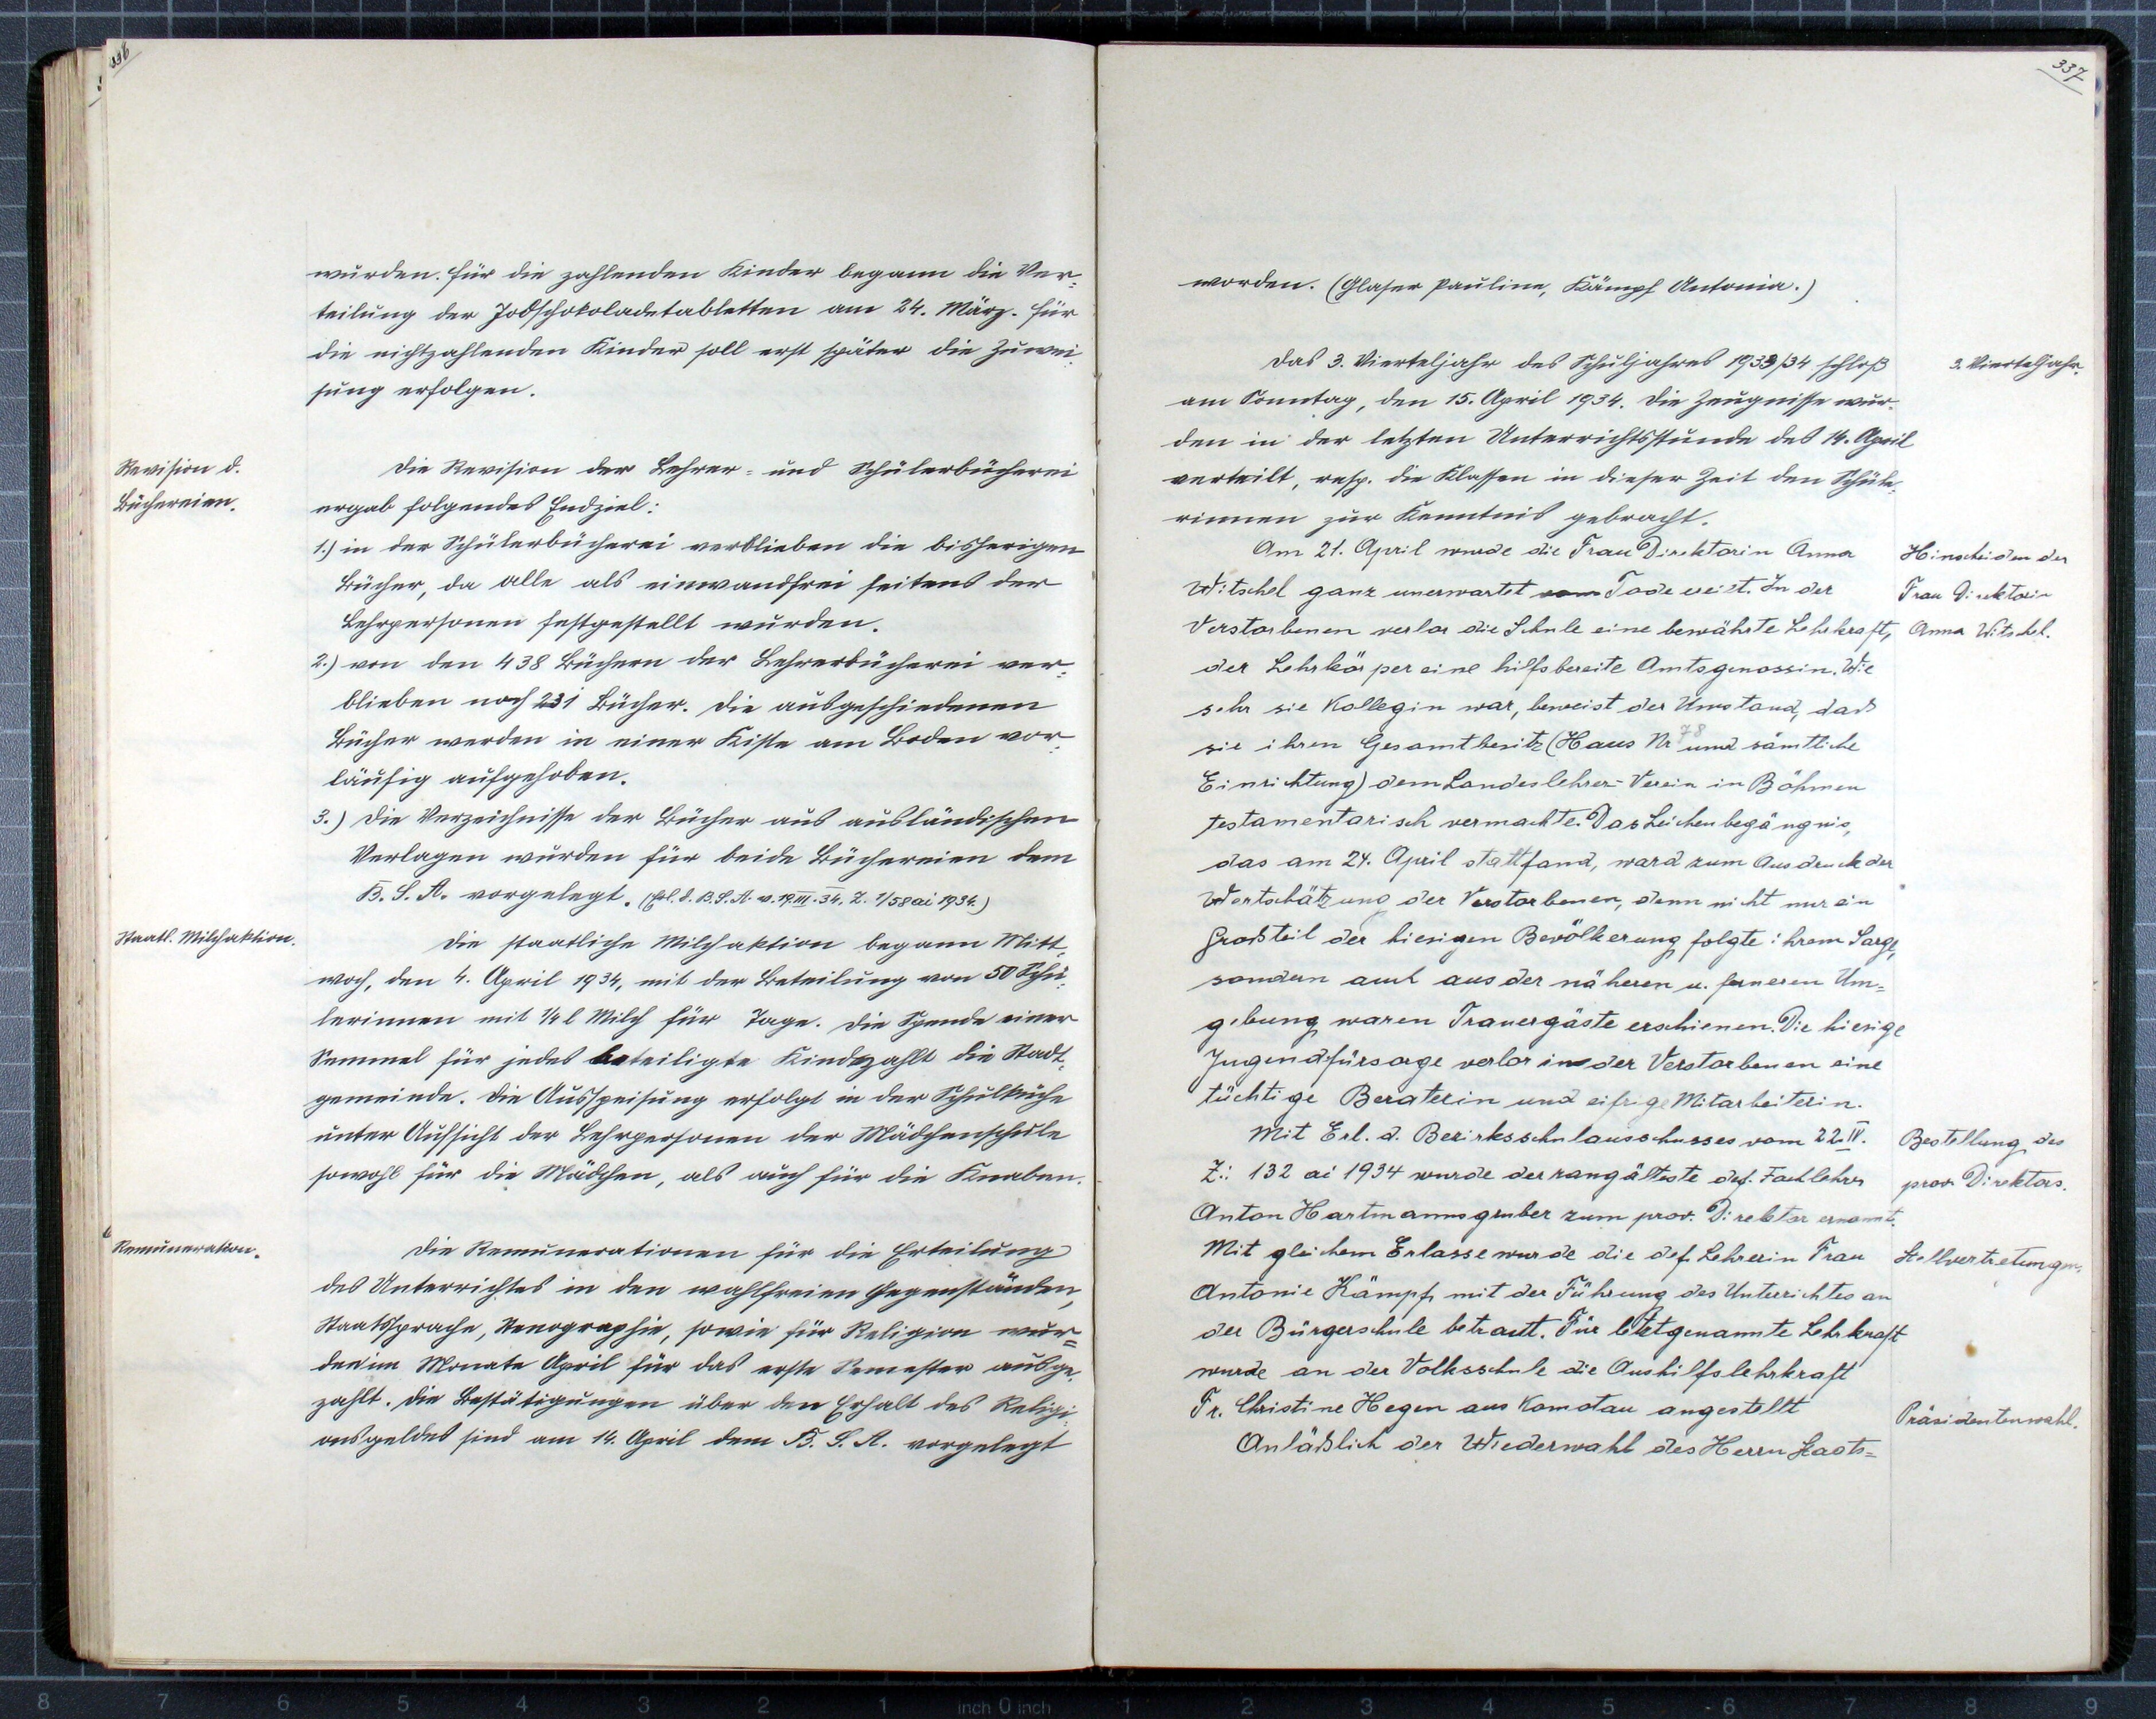 336
wurden. Für die zahlenden Kinder begann die Ver-
teilung der Jodschokoladetabletten am 24. März. Für
die nichtzahlenden Kinder soll erst später die Zuwei-
sung erfolgen.
Revision d.
Büchereien.
Die Revision der Lehrer- und Schülerbücherei
ergab folgendes Endziel:
1.) in der Schülerbücherei verblieben die bisherigen
Bücher, da alle als einwandfrei seitens der
Lehrpersonen festgestellt wurden.
2.) von den 438 Büchern der Lehrerbücherei ver-
blieben noch 231 Bücher. Die ausgeschiedenen
Bücher werden in einer Kiste am Boden vor-
läufig aufgehoben.
3.) Die Verzeichnisse der Bücher aus ausländischen
Verlagen wurden für beide Büchereien dem
B. S. A. vorgelegt. (Erl. d. B. S. A. v. 19. III. 34, Z. 1/58 ai 1934.)
Staatl. Milchaktion.
Die staatliche Milchaktion begann Mitt-
woch, den 4. April 1934, mit der Beteilung von 50 Schü-
lerinnen mit 1/4 l Milch für Tage. Die Spende einer
Semmel für jedes beteiligte Kind zahlt die Stadt-
gemeinde. Die Ausspeisung erfolgt in der Schulküche
unter Aufsicht der Lehrpersonen der Mädchenschule
sowohl für die Mädchen, als auch für die Knaben.
Remuneration.
Die Remunerationen für die Erteilung
des Unterrichtes in den wahlfreien Gegenständen,
Staatssprache, Stenographie, sowie für Religion wur=
den im Monate April für das erste Semester ausge-
zahlt. Die Bestätigungen über den Erhalt des Religi-
onsgeldes sind am 14. April dem B. S. A. vorgelegt
337
worden. (Glaser Pauline, Kämpf Antonia.)
Das 3. Vierteljahr des Schuljahres 1933/34 schloß
3. Vierteljahr.
am Sonntag, den 15. April 1934. Die Zeugnisse wur-
den in der letzten Unterrichtsstunde des 14. April
verteilt, resp. die Klassen in dieser Zeit den Schüle-
rinnen zur Kenntnis gebracht.
Am 21. April wurde die Frau Direktorin Anna
Hinscheiden der
Witschel ganz unerwartet vom Tode ereilt. In der
Frau Direktorin
Verstorbenen verlor die Schule eine bewährte Lehrkraft,
Anna Witschel.
der Lehrkörper eine hilfsbereite Amtsgenossin. Wie
sehr sie Kollegin war, beweist der Umstand, daß
sie ihren Gesamtbesitz (Haus Nr 78 und sämtliche
Einrichtung) dem Landeslehrer-Verein in Böhmen
testamentarisch vermachte. Das Leichenbegängnis,
das am 24. April stattfand, ward zum Ausdruck der
Wertschätzung der Verstorbenen, denn nicht nur ein
Großteil der hiesigen Bevölkerung folgte ihrem Sarge,
sondern auch aus der näheren u. ferneren Um=
gebung waren Trauergäste erschienen. Die hiesige
Jugendfürsorge verlor in der Verstorbenen eine
tüchtige Beraterin und eifrige Mitarbeiterin.
Mit Erl. d. Bezirksschulausschusses vom 22. IV.
Bestellung des
Z.: 132 ai 1934 wurde der rangälteste def. Fachlehrer
prov. Direktors.
Anton Hartmannsgruber zum prov. Direktor ernannt.
Mit gleichem Erlasse wurde die def. Lehrerin Frau
Stellvertretungen.
Antonie Kämpf mit der Führung des Unterrichtes an
der Bürgerschule betraut. Für letztgenannte Lehrkraft
wurde an der Volksschule die Aushilfslehrkraft
Fr. Christine Hegen aus Komotau angestellt
Präsidentenwahl.
Anläßlich der Wiederwahl des Herrn Staats=
8 7 6 5 4 3 2 1 inch 0 inch 1 2 3 4 5 6 7 8 9